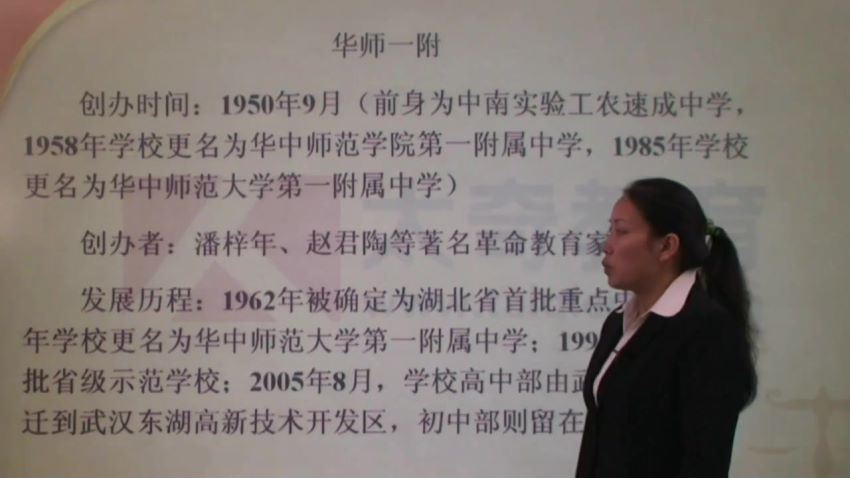 华师一附
创办时间：1950年9月（前身为中南实验工农速成中学，
1958年学校更名为华中师范学院第一附属中学，1985年学校
更名为华中师范大学第一附属中学）
创办者：潘梓年、赵君陶等著名革命教育家
发展历程：1962年被确定为湖北省首批重点
年学校更名为华中师范大学第一附属中学；199
批省级示范学校；2005年8月，学校高中部由武
迁到武汉东湖高新技术开发区，初中部则留在
太奇教育